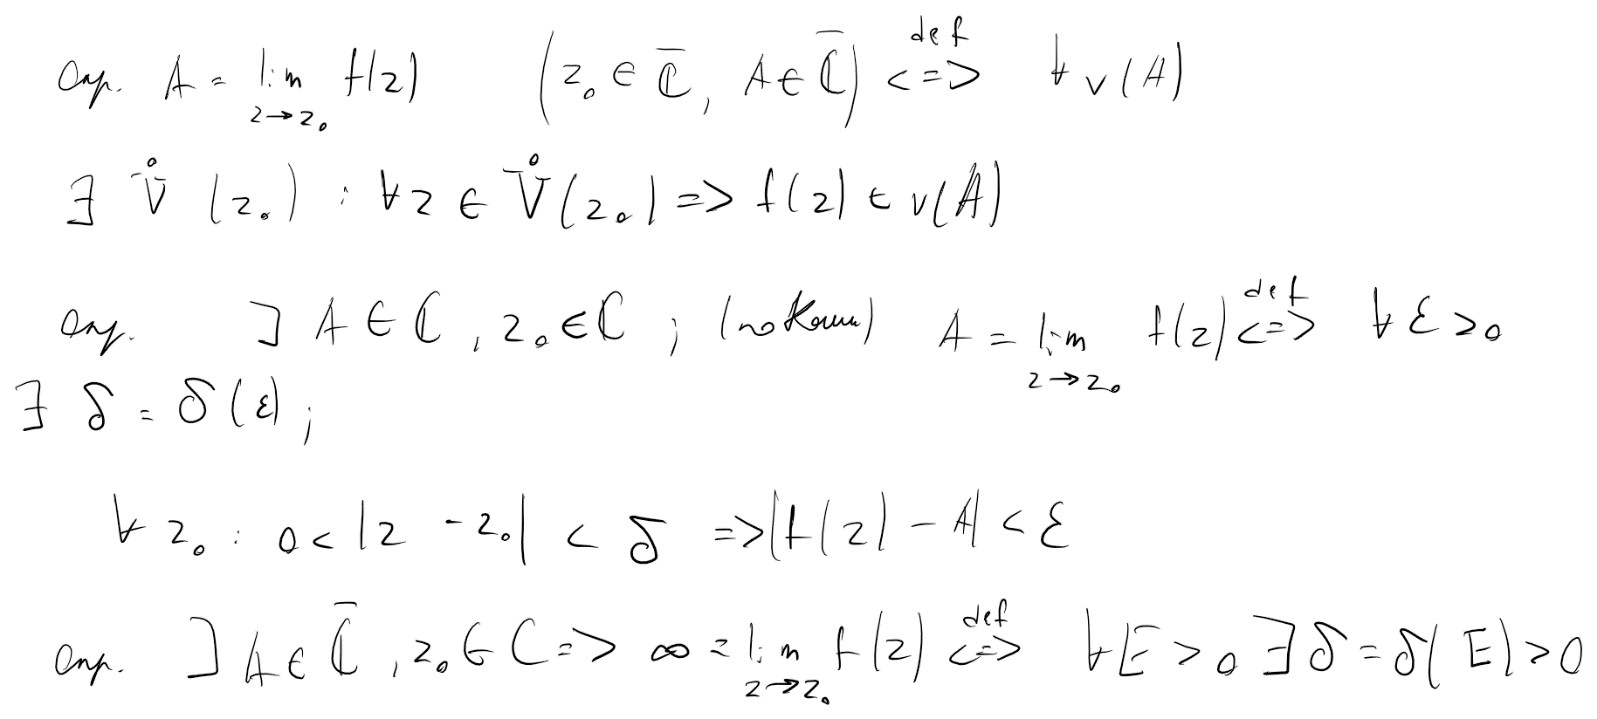 опр. A = lim_{z→z₀} f(z) (z₀ ∈ ℂ̅, A ∈ ℂ̅) <=>^{def} ∀ v(A)
∃ V̊(z₀) : ∀z ∈ V̊(z₀) => f(z) ∈ v(A)
опр. ] A ∈ ℂ, z₀ ∈ ℂ ; (по Коши) A = lim_{z→z₀} f(z) <=>^{def} ∀ ε > 0
∃ δ = δ(ε) ;
∀ z₀ : 0 < |z - z₀| < δ => |f(z) - A| < ε
опр. ] A ∈ ℂ̅, z₀ ∈ C => ∞ = lim_{z→z₀} f(z) <=>^{def} ∀E > 0 ∃ δ = δ(E) > 0